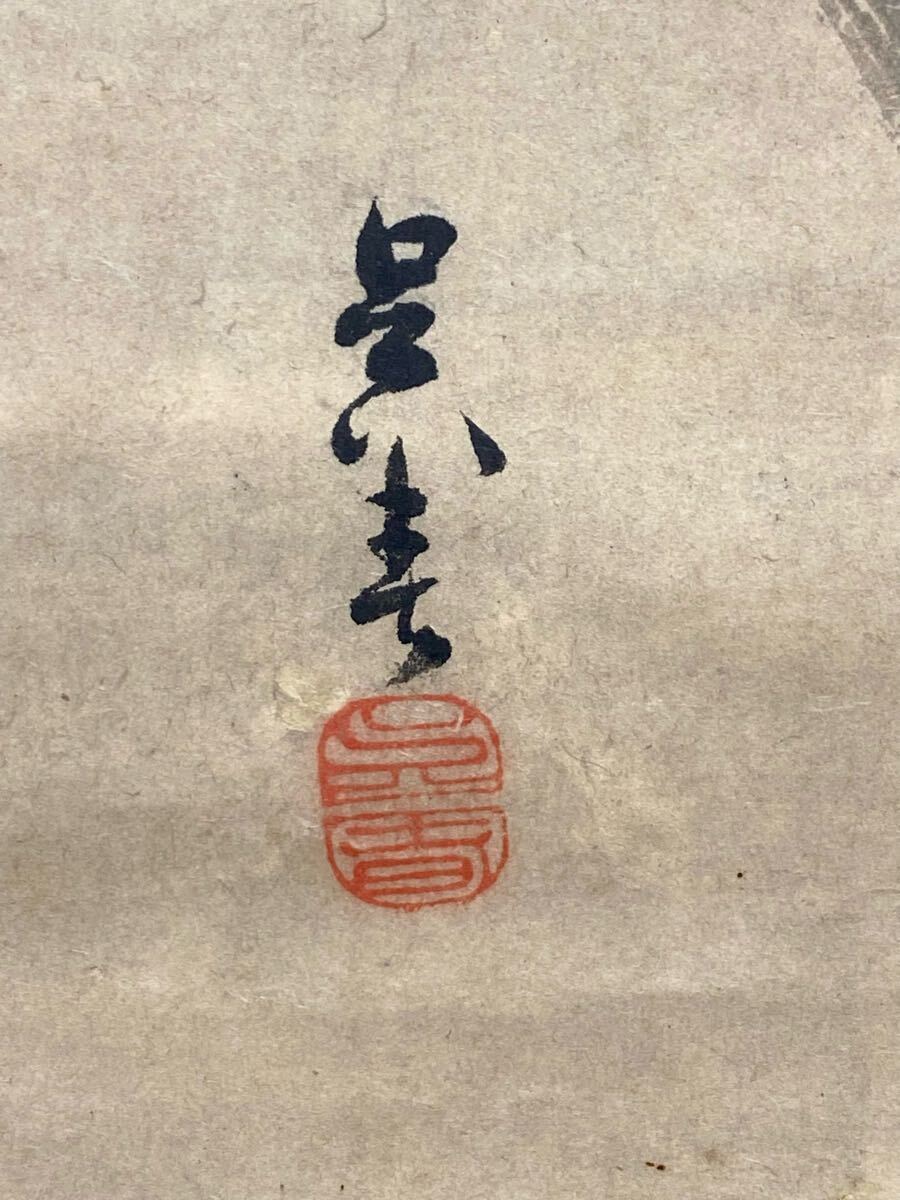 呉春
呉春